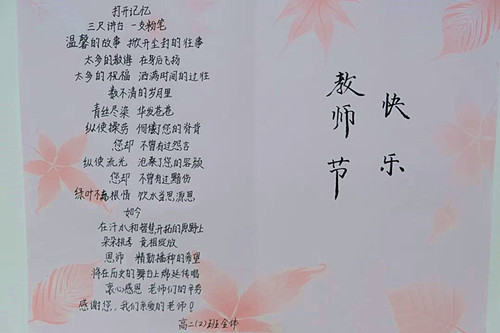 打开记忆
三尺讲台 一支粉笔
温馨的故事 掀开尘封的往事
太多的教诲 在身后飞扬
太多的祝福 洒满时间的过往
数不清的岁月里
青丝尽染 华发苍苍
纵使操劳 佝偻了您的脊背
您却 不曾有过怨言
纵使流光 沧桑了您的容颜
您却 不曾有过黯伤
绿叶不忘根情 饮水当思源恩
如今
在汗水和智慧开拓的原野上
朵朵桃李 竞相绽放
恩师 精勤播种的希望
将在历史的舞台上绵延传唱
衷心感恩 老师们的辛劳
感谢您,我们亲爱的老师!
高二(2)班全体
教师节
快乐